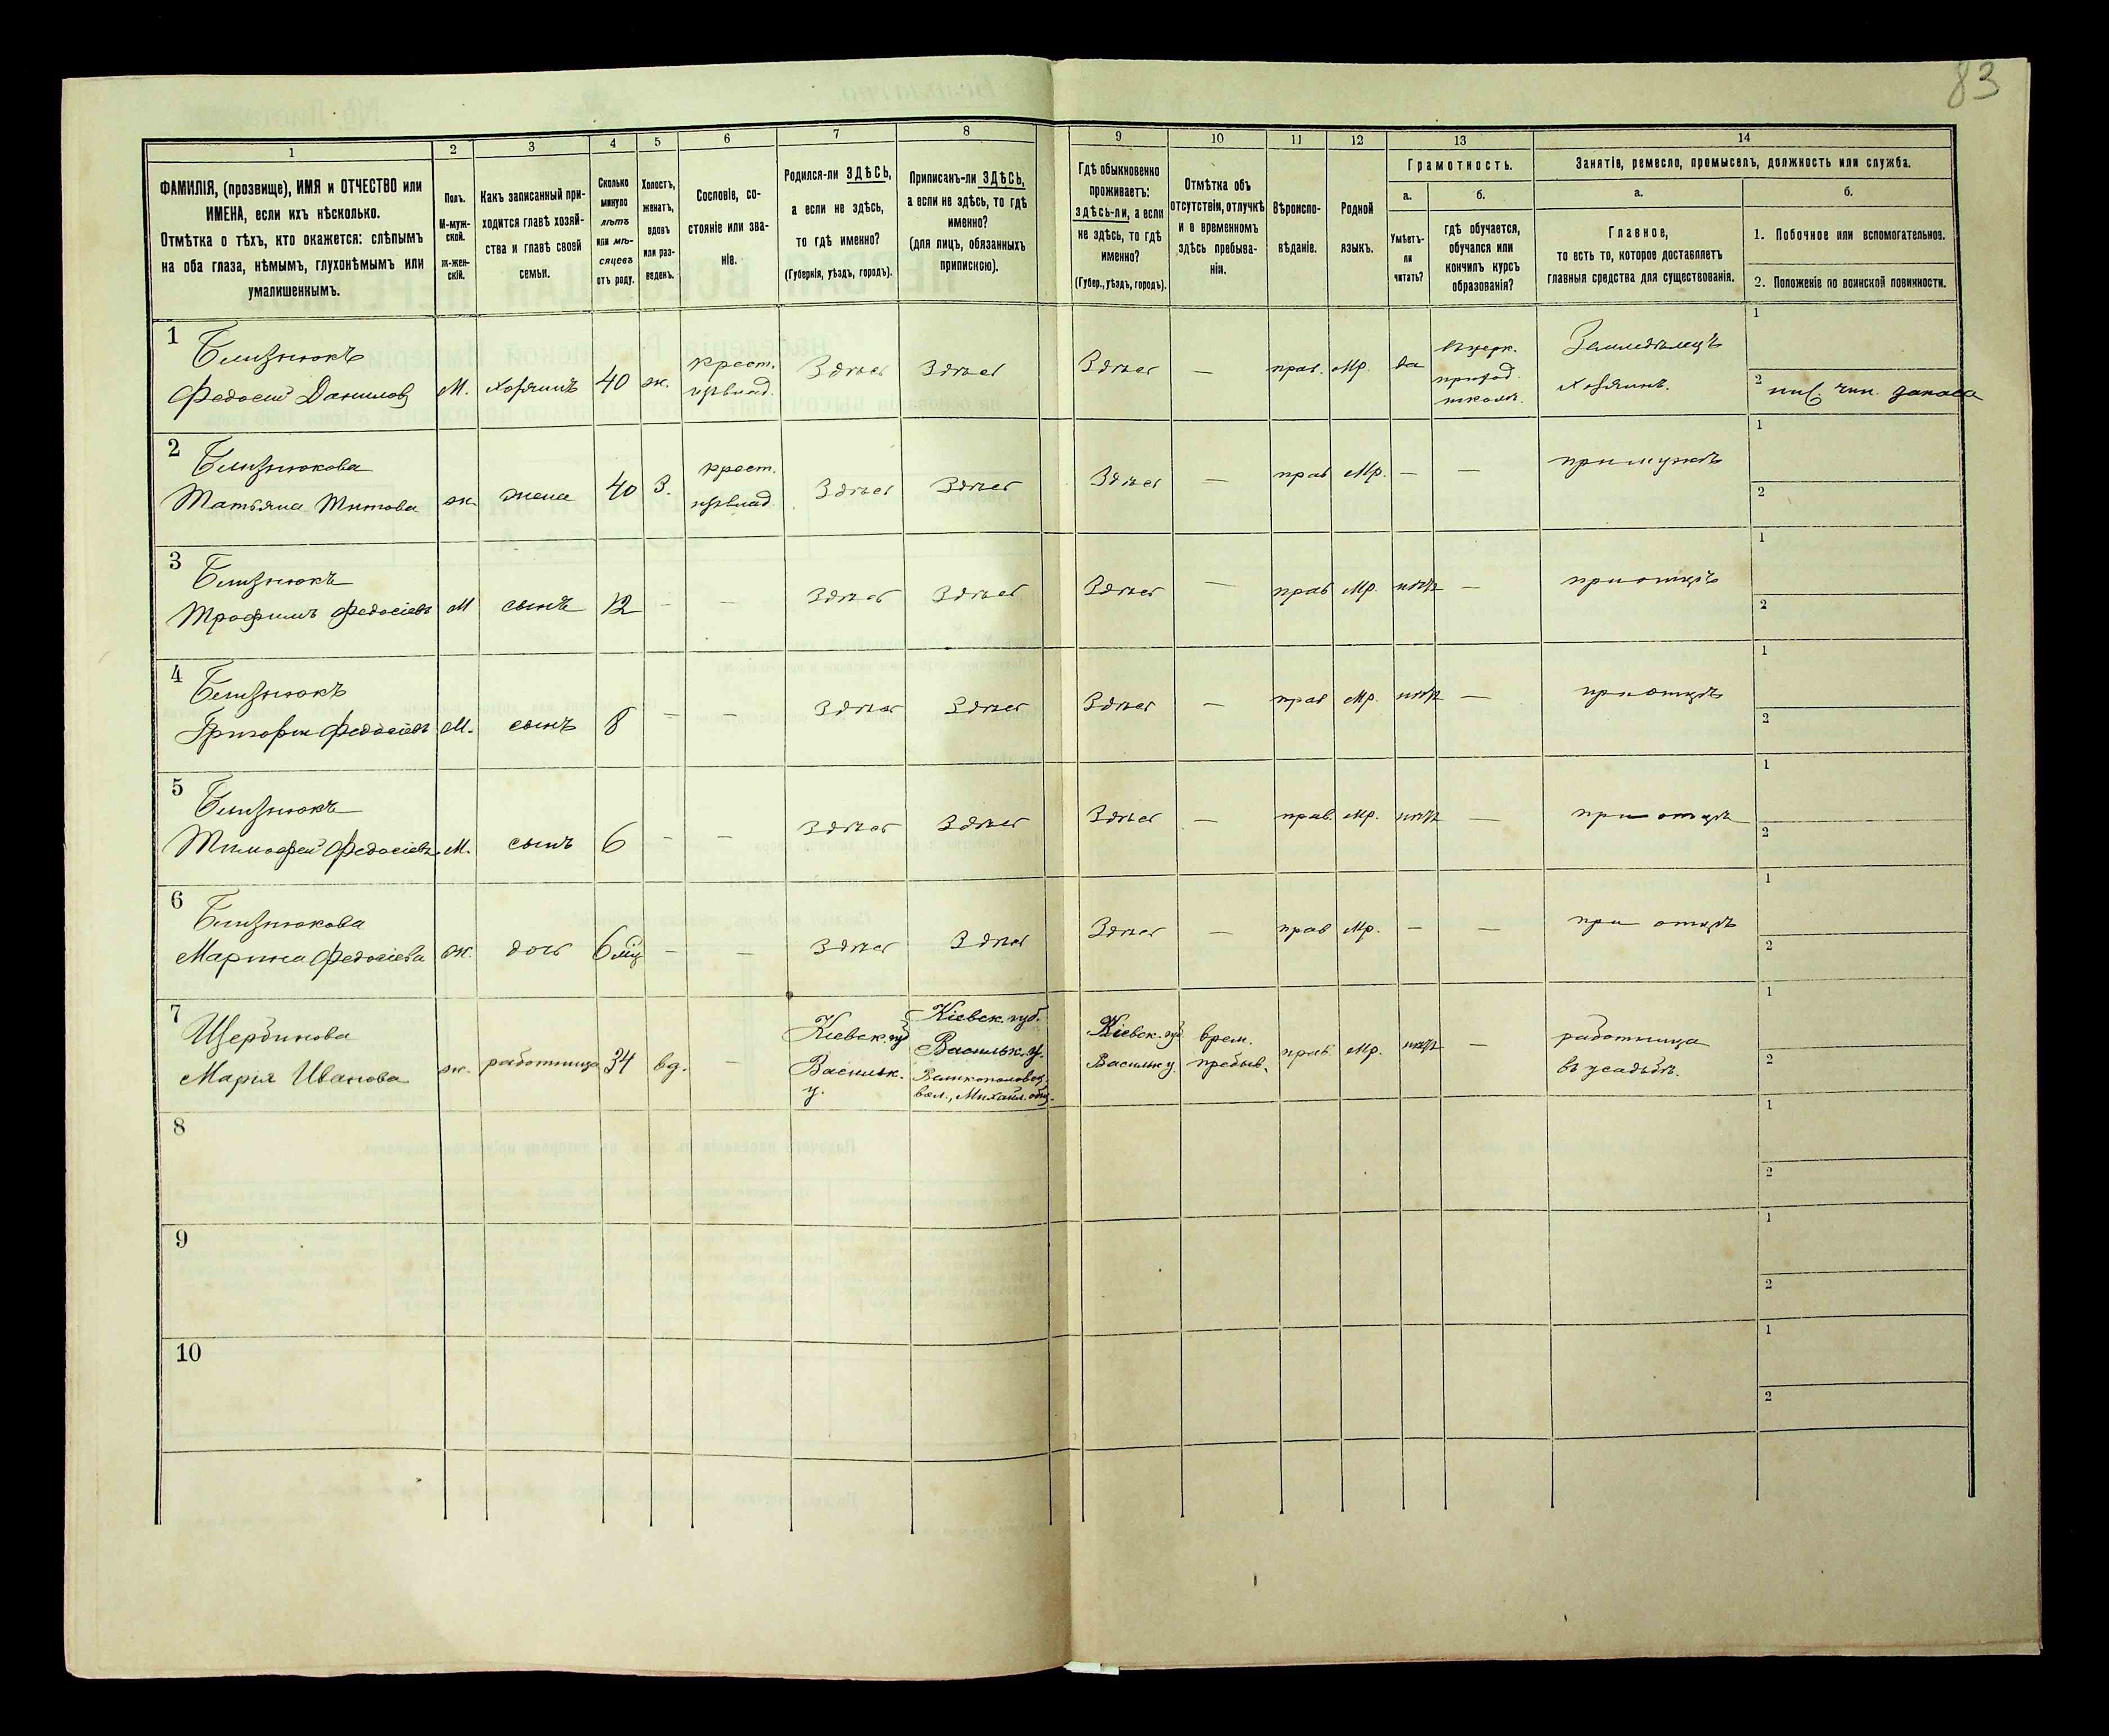 83
1 2 3 4 5 6 7 8 9 10 11 12 13 14
ФАМИЛІЯ, (прозвище), ИМЯ и ОТЧЕСТВО или
ИМЕНА, если ихъ нѣсколько.
Отмѣтка о тѣхъ, кто окажется: слѣпымъ
на оба глаза, нѣмымъ, глухонѣмымъ или
умалишеннымъ.
Полъ.
М-муж-
ской.
Ж-жен-
скій.
Какъ записанный при-
ходится главѣ хозяй-
ства и главѣ своей
семьи.
Сколько
минуло
лѣтъ
или мѣ-
сяцевъ
отъ роду.
Холостъ,
женатъ,
вдовъ
или раз-
веденъ.
Сословіе, со-
стояніе или зва-
ніе.
Родился-ли ЗДѢСЬ,
а если не здѣсь,
то гдѣ именно?
(Губернія, уѣздъ, городъ).
Приписанъ-ли ЗДѢСЬ,
а если не здѣсь, то гдѣ
именно?
(для лицъ, обязанныхъ
припискою).
Гдѣ обыкновенно
проживаетъ:
ЗДѢСЬ-ЛИ, а если
не здѣсь, то гдѣ
именно?
(Губер., уѣздъ, городъ).
Отмѣтка объ
отсутствіи, отлучкѣ
и о временномъ
здѣсь пребыва-
ніи.
Вѣроиспо-
вѣданіе.
Родной
языкъ.
Грамотность.
а.
Умѣетъ-
ли
читать?
б.
гдѣ обучается,
обучался или
кончилъ курсъ
образованія?
Занятіе, ремесло, промыселъ, должность или служба.
а.
Главное,
то есть то, которое доставляетъ
главныя средства для существованія.
б.
1. Побочное или вспомогательное.
2. Положеніе по воинской повинности.
1
Близнюкъ
Федосей Данилов
М. хозяинъ 40 ж.
крест.
Здѣсь Здѣсь Здѣсь — прав. Мр. да
въ церк.
приход.
школѣ.
Земледѣлецъ
хозяинъ.
1
2 ниж. чин. запаса
2
Близнюкова
Татьяна Титова
ж. жена 40 З.
крест.
Здѣсь Здѣсь Здѣсь — прав Мр. — — при мужѣ
1
2
3
Близнюкъ
Трофимъ Федосіевъ
М сынъ 12 — — Здѣсь Здѣсь Здѣсь — прав Мр. нѣтъ — при отцѣ
1
2
4
Близнюкъ
Григорій Федосіевъ
М. сынъ 8 — — Здѣсь Здѣсь Здѣсь — прав Мр. нѣтъ — при отцѣ
1
2
5
Близнюкъ
Тимофей Федосіевъ
М. сынъ 6 — — Здѣсь Здѣсь Здѣсь — прав. Мр. нѣтъ — при отцѣ
1
2
6
Близнюкова
Марина Федосіева
ж. дочь 6 мѣц — — Здѣсь Здѣсь Здѣсь — прав Мр. — — при отцѣ
1
2
7
Щербинова
Марія Иванова
ж. работница 34 вд. —
Кіевск. губ
Васильк.
у.
Кіевск. губ.
Васильк. у.
вол., Михайл. общ.
Кіевск. губ
Васильк у.
врем.
пребыв.
прав. Мр. нѣтъ —
работница
въ усадьбѣ.
1
2
8
1
2
9
1
2
10
1
2